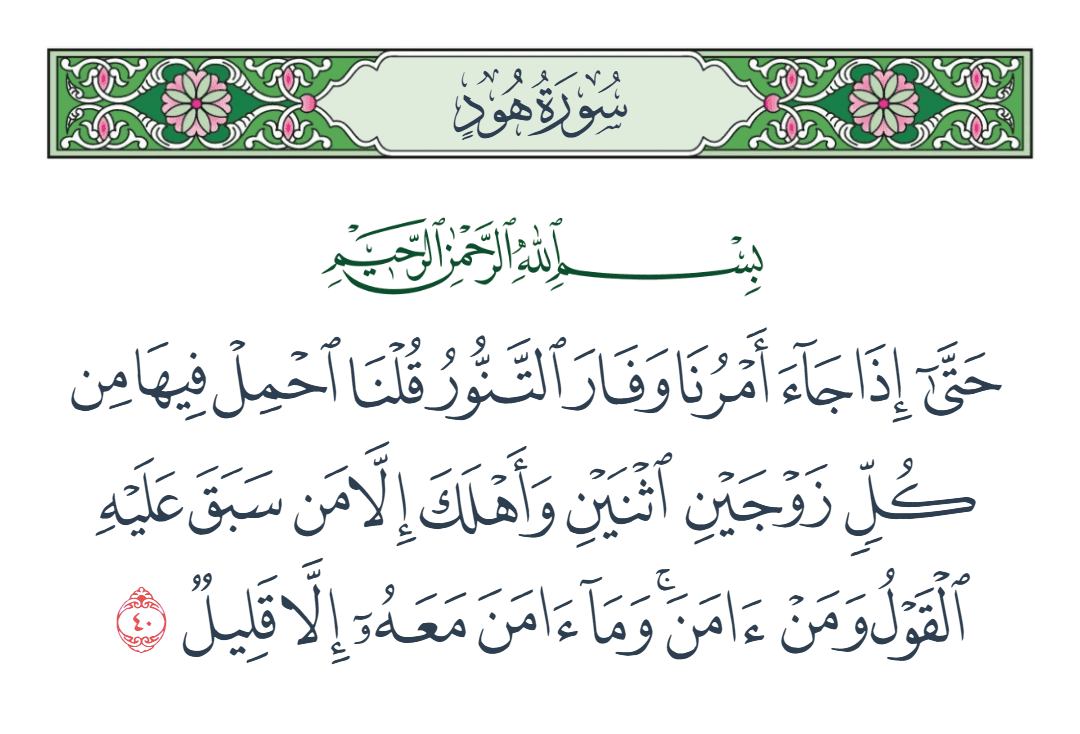 سُورَةُ هُودٍ
بِسْمِ ٱللَّهِ ٱلرَّحْمَٰنِ ٱلرَّحِيمِ
حَتَّىٰٓ إِذَا جَآءَ أَمْرُنَا وَفَارَ ٱلتَّنُّورُ قُلْنَا ٱحْمِلْ فِيهَا مِن
كُلٍّ زَوْجَيْنِ ٱثْنَيْنِ وَأَهْلَكَ إِلَّا مَن سَبَقَ عَلَيْهِ
ٱلْقَوْلُ وَمَنْ ءَامَنَ ۚ وَمَآ ءَامَنَ مَعَهُۥٓ إِلَّا قَلِيلٌ ٤٠